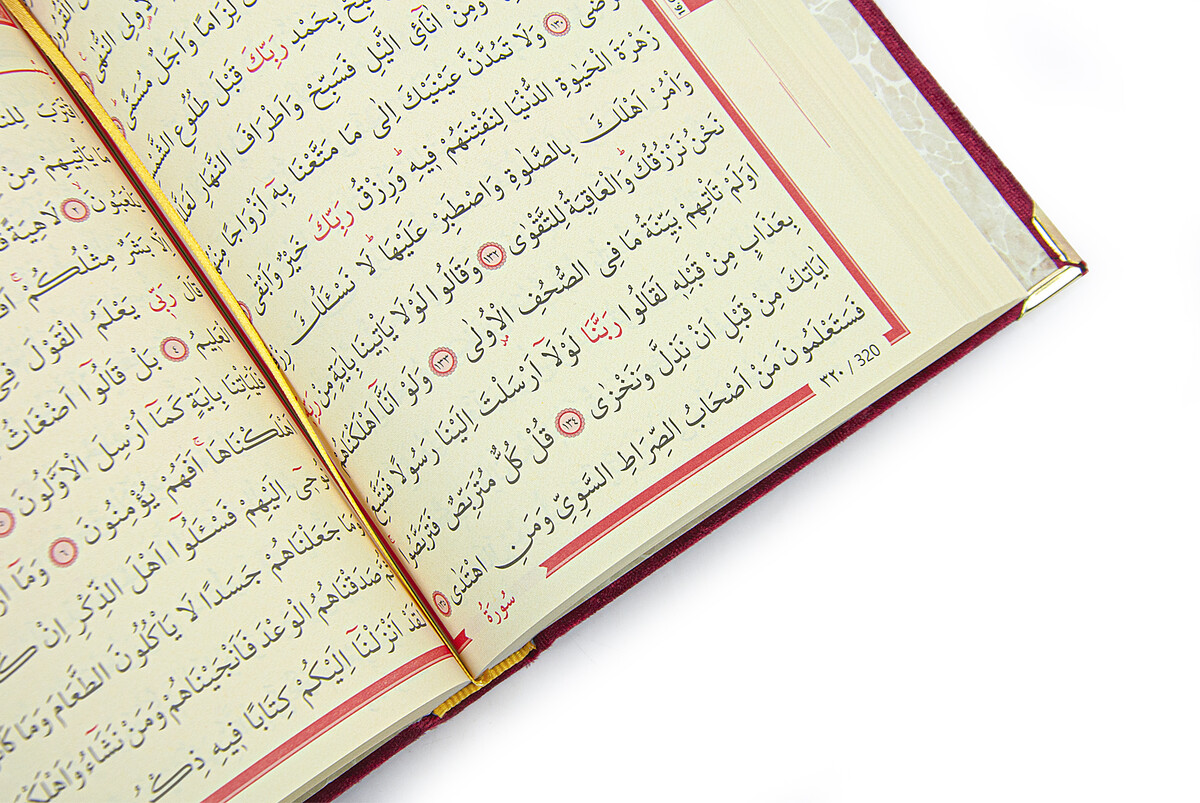 لِاُولِى النُّهٰى
لِزَامًا وَاَجَلٌ مُسَمًّى
بِحَمْدِ رَبِّكَ قَبْلَ طُلُوعِ الشَّمْسِ
وَمِنْ اٰنَآئِ الَّيْلِ فَسَبِّحْ وَاَطْرَافَ النَّهَارِ
١٣٠ وَلَا تَمُدَّنَّ عَيْنَيْكَ اِلٰى مَا مَتَّعْنَا بِهٓ اَزْوَاجًا
زَهْرَةَ الْحَيٰوةِ الدُّنْيَا لِنَفْتِنَهُمْ فِيهِ وَرِزْقُ رَبِّكَ خَيْرٌ وَاَبْقٰى
وَاْمُرْ اَهْلَكَ بِالصَّلٰوةِ وَاصْطَبِرْ عَلَيْهَا لَا نَسْـَٔلُكَ
نَحْنُ نَرْزُقُكَ وَالْعَاقِبَةُ لِلتَّقْوٰى ١٣٢ وَقَالُوا لَوْلَا يَاْتِينَا بِاٰيَةٍ مِنْ
اَوَلَمْ تَاْتِهِمْ بَيِّنَةُ مَا فِى الصُّحُفِ الْاُولٰى ١٣٣ وَلَوْ اَنَّآ اَهْلَكْنَاهُمْ
بِعَذَابٍ مِنْ قَبْلِهِ لَقَالُوا رَبَّنَا لَوْلَآ اَرْسَلْتَ اِلَيْنَا رَسُولًا فَنَتَّبِعَ
اٰيَاتِكَ مِنْ قَبْلِ اَنْ نَذِلَّ وَنَخْزٰى ١٣٤ قُلْ كُلٌّ مُتَرَبِّصٌ فَتَرَبَّصُوا
فَسَتَعْلَمُونَ مَنْ اَصْحَابُ الصِّرَاطِ السَّوِىِّ وَمَنِ اهْتَدٰى ١٣٥
٣٢٠ / 320
سُورَةُ
اِقْتَرَبَ
مَا يَاْتِيهِمْ مِنْ
٢ لَاهِيَةً
اِلَّا بَشَرٌ مِثْلُكُمْ
قَالَ رَبِّى يَعْلَمُ الْقَوْلَ فِى
الْعَلِيمُ ٤ بَلْ قَالُوا اَضْغَاثُ
فَلْيَاْتِنَا بِاٰيَةٍ كَمَآ اُرْسِلَ الْاَوَّلُونَ ٥
اَهْلَكْنَاهَا اَفَهُمْ يُؤْمِنُونَ ٦ وَمَآ
نُوحِىٓ اِلَيْهِمْ فَسْـَٔلُوا اَهْلَ الذِّكْرِ اِنْ
وَمَا جَعَلْنَاهُمْ جَسَدًا لَا يَاْكُلُونَ الطَّعَامَ وَمَا
صَدَقْنَاهُمُ الْوَعْدَ فَاَنْجَيْنَاهُمْ وَمَنْ نَشَآءُ وَاَهْلَكْنَا
لَقَدْ اَنْزَلْنَآ اِلَيْكُمْ كِتَابًا فِيهِ ذِكْرُ